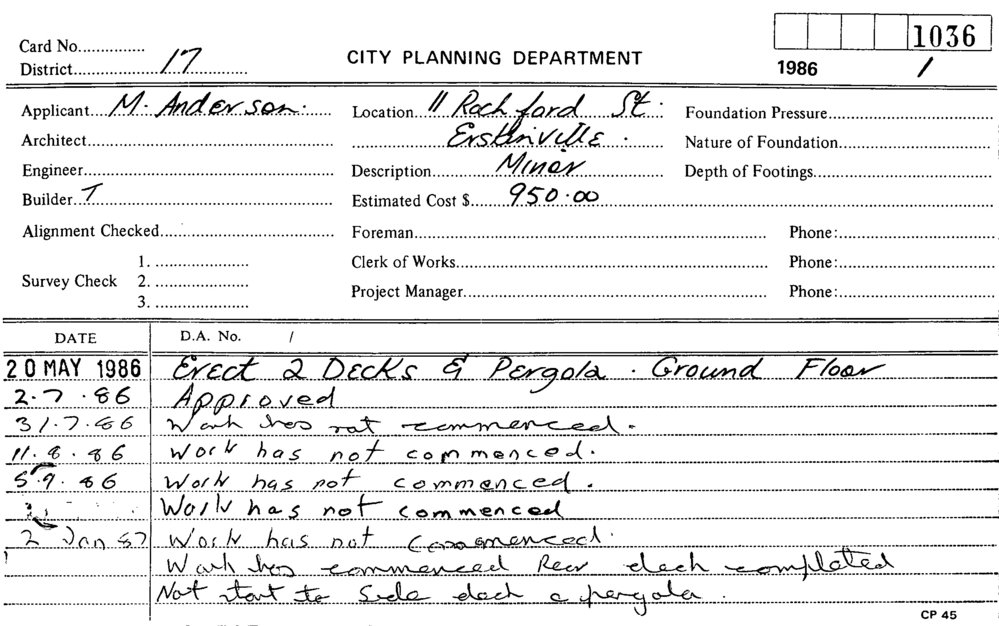 1036
Card No...............
District 17
CITY PLANNING DEPARTMENT
1986 /
Applicant M. Anderson.
Location 11 Rochford St.
Foundation Pressure
Architect
Erskinville.
Nature of Foundation
Engineer
Description Minor
Depth of Footings
Builder T
Estimated Cost $ 950.00
Alignment Checked
Foreman
Phone:
Survey Check
1.
Clerk of Works
Phone:
2.
3.
Project Manager
Phone:
DATE D.A. No. /
20 MAY 1986 Erect 2 Decks & Pergola. Ground Floor
2.7.86 Approved
31.7.86 Work has not commenced.
11.8.86 Work has not commenced.
5.9.86 Work has not commenced.
Work has not commenced
2 Jan 87 Work has not commenced.
Work has commenced Rear deck completed
Not start to side deck a pergola.
CP 45